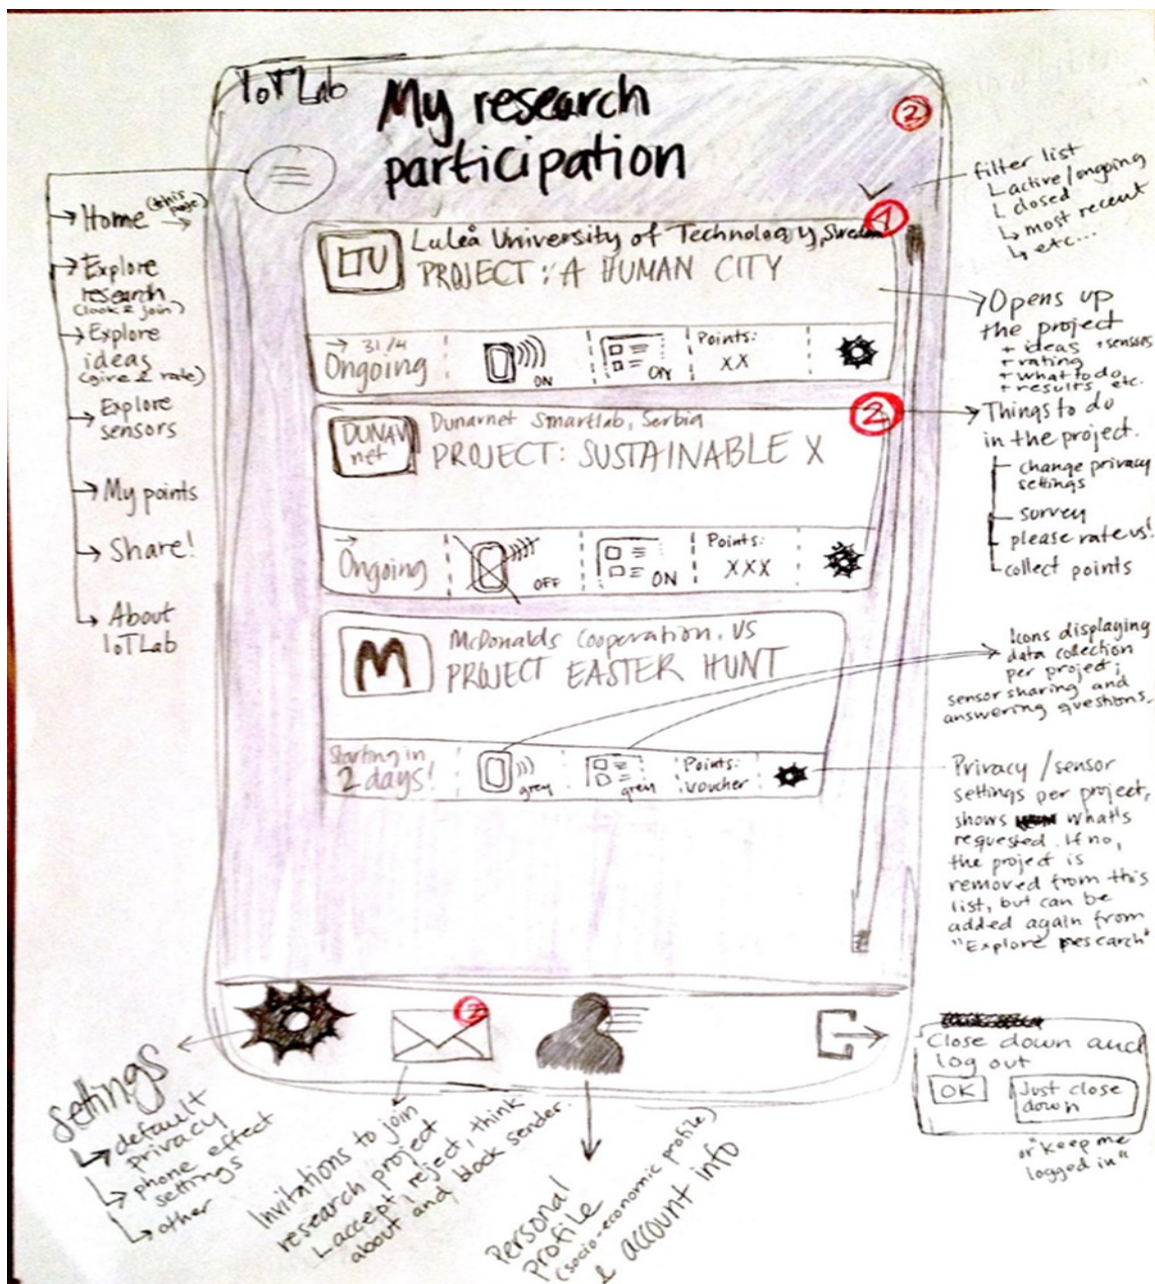 IoTLab
My research
participation
2
Home (this page)
Explore
research
(look & join)
Explore
ideas
(give & rate)
Explore
sensors
My points
Share!
About
IoTLab
filter list
active/ongoing
closed
most recent
etc...
1
LTU
Luleå University of Technology, Sweden
PROJECT: A HUMAN CITY
31/4
Ongoing
ON
ON
Points:
XX
Opens up
the project
+ ideas + sensors
+ rating
+ what to do
+ results etc.
2
DUNAV
net
Dunavnet Smartlab, Serbia
PROJECT: SUSTAINABLE X
Ongoing
OFF
ON
Points:
XXX
Things to do
in the project.
change privacy
settings
survey
please rate us!
collect points
M
McDonalds Cooperation, US
PROJECT EASTER HUNT
Starting in
2 days!
grey
grey
Points:
voucher
Icons displaying
data collection
per project;
sensor sharing and
answering questions.
Privacy/sensor
settings per project,
shows what's
requested. If no,
the project is
removed from this
list, but can be
added again from
"Explore research"
settings
default
privacy
phone effect
settings
other
Invitations to join
research project
accept, reject, think
about and block sender.
Personal
profile
(socio-economic profile)
& account info
Close down and
log out
OK
Just close
down
or "keep me
logged in"